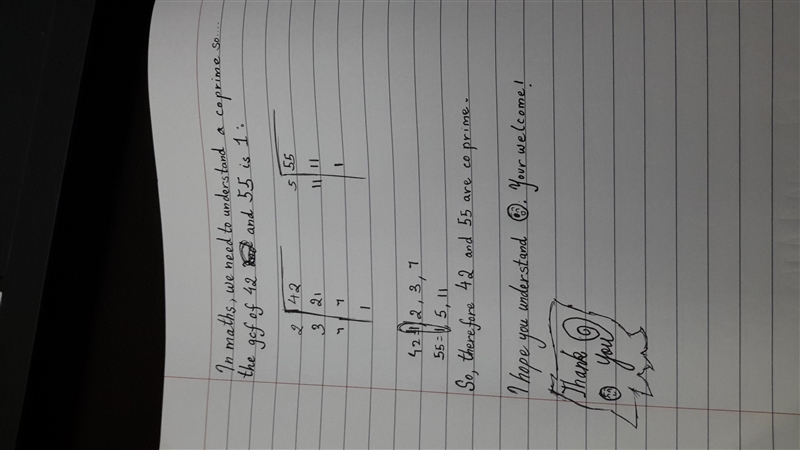 In maths, we need to understand a coprime so....
the gcf of 42 and 55 is 1:
2 42
3 21
7 7
1
5 55
11 11
1
42 = 1, 2, 3, 7
55 = 1, 5, 11
So, therefore 42 and 55 are coprime.
I hope you understand. Your welcome!
Thank
You